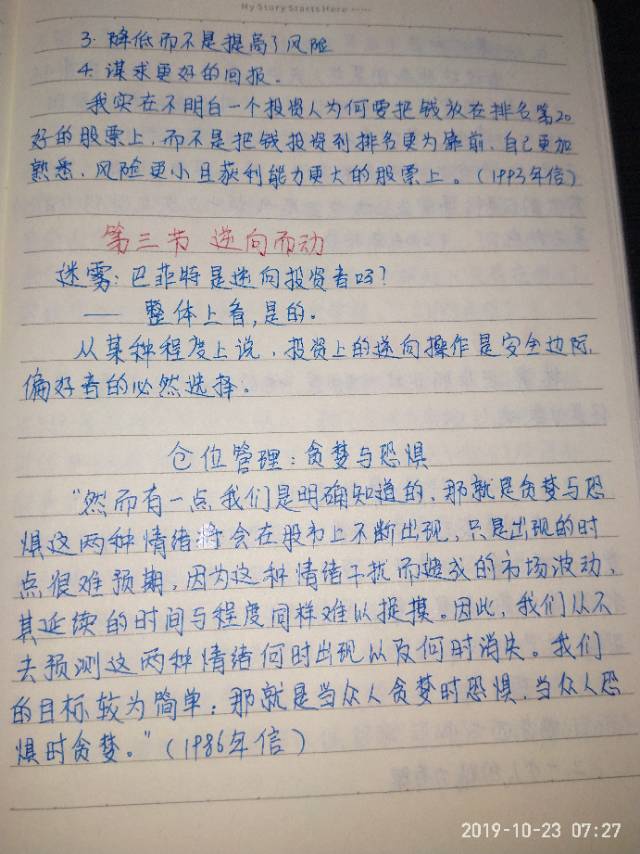 My Story Starts Here
3. 降低而不是提高了风险
4. 谋求更好的回报。
我实在不明白一个投资人为何要把钱放在排名第20
好的股票上,而不是把钱投资到排名更为靠前、自己更加
熟悉、风险更小且获利能力更大的股票上。(1993年信)
第三节 逆向而动
迷雾:巴菲特是逆向投资者吗?
—— 整体上看,是的。
从某种程度上说,投资上的逆向操作是安全边际
偏好者的必然选择。
仓位管理:贪婪与恐惧
“然而有一点我们是明确知道的,那就是贪婪与恐
惧这两种情绪将会在股市上不断出现,只是出现的时
点很难预期,因为这种情绪干扰而造成的市场波动,
其延续的时间与程度同样难以捉摸。因此,我们从不
去预测这两种情绪何时出现以及何时消失。我们
的目标较为简单:那就是当众人贪婪时恐惧,当众人恐
惧时贪婪。”(1986年信)
2019-10-23 07:27